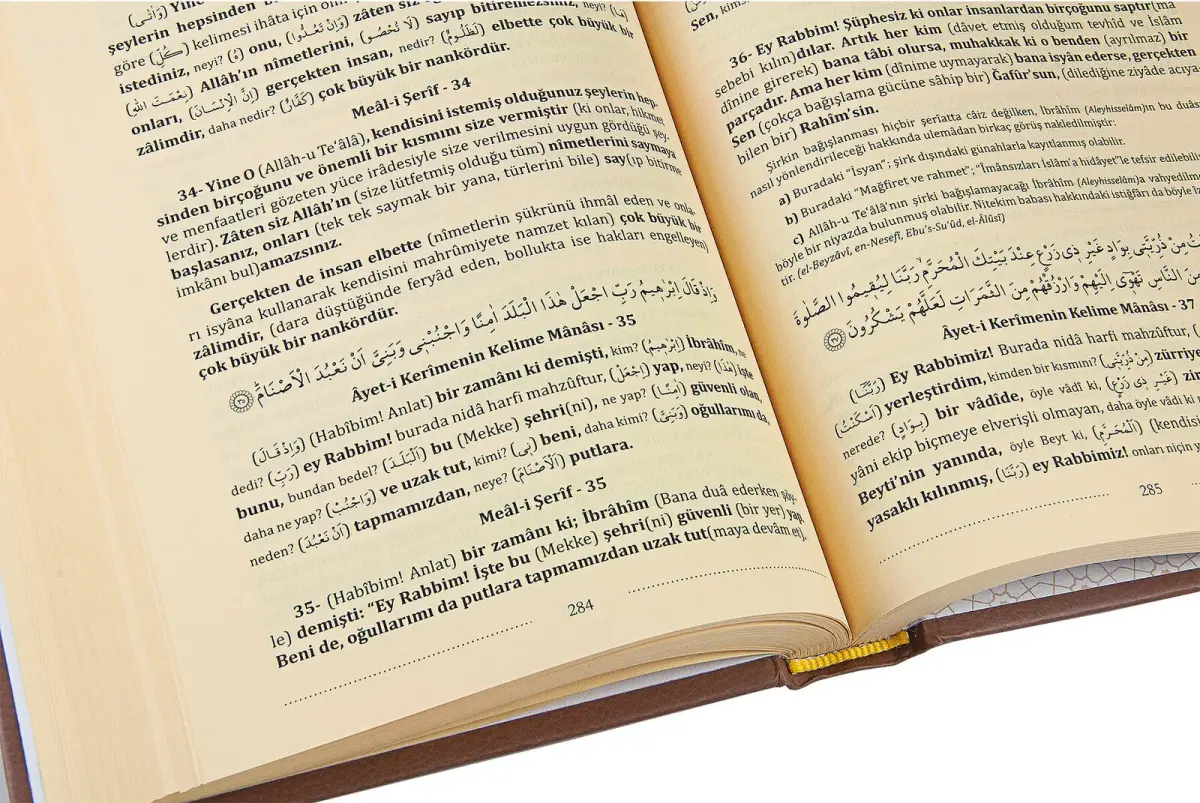 (وَاٰتٰى) Yine
şeylerin hepsinden
göre (كُلِّ) kelimesi ihâta için olm
istediniz, neyi? (هُ) onu, (وَاِنْ تَعُدُّوا) zâten siz
(نِعْمَتَ اللّٰهِ) Allâh'ın nîmetlerini, (لَا تُحْصُو) sayıp bitiremezsiniz, neyi? (هَا)
onları, (اِنَّ الْاِنْسَانَ) gerçekten insan, nedir? (لَظَلُومٌ) elbette çok büyük bir
zâlimdir, daha nedir? (كَفَّارٌ) çok büyük bir nankördür.
Meâl-i Şerîf - 34
34- Yine O (Allâh-u Te'âlâ), kendisini istemiş olduğunuz şeylerin hep-
sinden birçoğunu ve önemli bir kısmını size vermiştir (ki onlar, hikmet
ve menfaatleri gözeten yüce irâdesiyle size verilmesini uygun gördüğü şey-
lerdir). Zâten siz Allâh'ın (size lütfetmiş olduğu tüm) nîmetlerini saymaya
başlasanız, onları (tek tek saymak bir yana, türlerini bile) say(ıp bitirme
imkânı bul)amazsınız.
Gerçekten de insan elbette (nîmetlerin şükrünü ihmâl eden ve onla-
rı isyâna kullanarak kendisini mahrûmiyete namzet kılan) çok büyük bir
zâlimdir, (dara düştüğünde feryâd eden, bollukta ise hakları engelleyen)
çok büyük bir nankördür.
وَاِذْ قَالَ اِبْرٰهِيمُ رَبِّ اجْعَلْ هٰذَا الْبَلَدَ اٰمِنًا وَاجْنُبْنِي وَبَنِيَّ اَنْ نَعْبُدَ الْاَصْنَامَ ﴿٣٥﴾
Âyet-i Kerîmenin Kelime Mânâsı - 35
(وَاِذْ قَالَ) (Habîbim! Anlat) bir zamânı ki demişti, kim? (اِبْرٰهِيمُ) İbrâhîm, ne
dedi? (رَبِّ) ey Rabbim! burada nidâ harfi mahzûftur, (اجْعَلْ) yap, neyi? (هٰذَا) işte
bunu, bundan bedel? (الْبَلَدَ) bu (Mekke) şehri(ni), ne yap? (اٰمِنًا) güvenli olan,
daha ne yap? (وَاجْنُبْ) ve uzak tut, kimi? (نِي) beni, daha kimi? (وَبَنِيَّ) oğullarımı da,
neden? (اَنْ نَعْبُدَ) tapmamızdan, neye? (الْاَصْنَامَ) putlara.
Meâl-i Şerîf - 35
35- (Habîbim! Anlat) bir zamânı ki; İbrâhîm (Bana duâ ederken şöy-
le) demişti: “Ey Rabbim! İşte bu (Mekke) şehri(ni) güvenli (bir yer) yap.
Beni de, oğullarımı da putlara tapmamızdan uzak tut(maya devâm et).
284
Sen, kimse
36- Ey Rabbim! Şüphesiz ki onlar insanlardan birçoğunu saptır(ma
sebebi kılın)dılar. Artık her kim (dâvet etmiş olduğum tevhîd ve İslâm
dînine girerek) bana tâbi olursa, muhakkak ki o benden (ayrılmaz) bir
parçadır. Ama her kim (dînime uymayarak) bana isyân ederse, gerçekten
Sen (çokça bağışlama gücüne sâhip bir) Ğafûr'sun, (dilediğine ziyâde acıya-
bilen bir) Rahîm'sin.
Şirkin bağışlanması hiçbir şerîatta câiz değilken, İbrâhîm (Aleyhisselâm)ın bu duâsı
nasıl yönlendirileceği hakkında ulemâdan birkaç görüş nakledilmiştir:
a) Buradaki “İsyan”; şirk dışındaki günahlarla kayıtlanmış olabilir.
b) Buradaki “Mağfiret ve rahmet”; “Îmânsızları İslâm'a hidâyet”le tefsir edilebilir
c) Allâh-u Te'âlâ'nın şirki bağışlamayacağı İbrâhîm (Aleyhisselâm)a vahyedilme
böyle bir niyazda bulunmuş olabilir. Nitekim babası hakkındaki istiğfârı da böyle iz
tir. (el-Beyzâvî, en-Nesefî, Ebu's-Su'ûd, el-Âlûsî)
مِنْ ذُرِّيَّتِي بِوَادٍ غَيْرِ ذِي زَرْعٍ عِنْدَ بَيْتِكَ الْمُحَرَّمِ رَبَّنَا لِيُقِيمُوا الصَّلٰوةَ
مِنَ النَّاسِ تَهْوِي اِلَيْهِمْ وَارْزُقْهُمْ مِنَ الثَّمَرَاتِ لَعَلَّهُمْ يَشْكُرُونَ ﴿٣٧﴾
Âyet-i Kerîmenin Kelime Mânâsı - 37
(رَبَّنَا) Ey Rabbimiz! Burada nidâ harfi mahzûftur,
(اَسْكَنْتُ) yerleştirdim, kimden bir kısmını? (مِنْ ذُرِّيَّتِي) zürriye
nerede? (بِوَادٍ) bir vâdîde, öyle vâdî ki, (غَيْرِ ذِي زَرْعٍ) zir
yâni ekip biçmeye elverişli olmayan, daha öyle vâdî ki n
Beyti'nin yanında, öyle Beyt ki, (الْمُحَرَّمِ) (kendisi
yasaklı kılınmış, (رَبَّنَا) ey Rabbimiz! onları niçin y
285